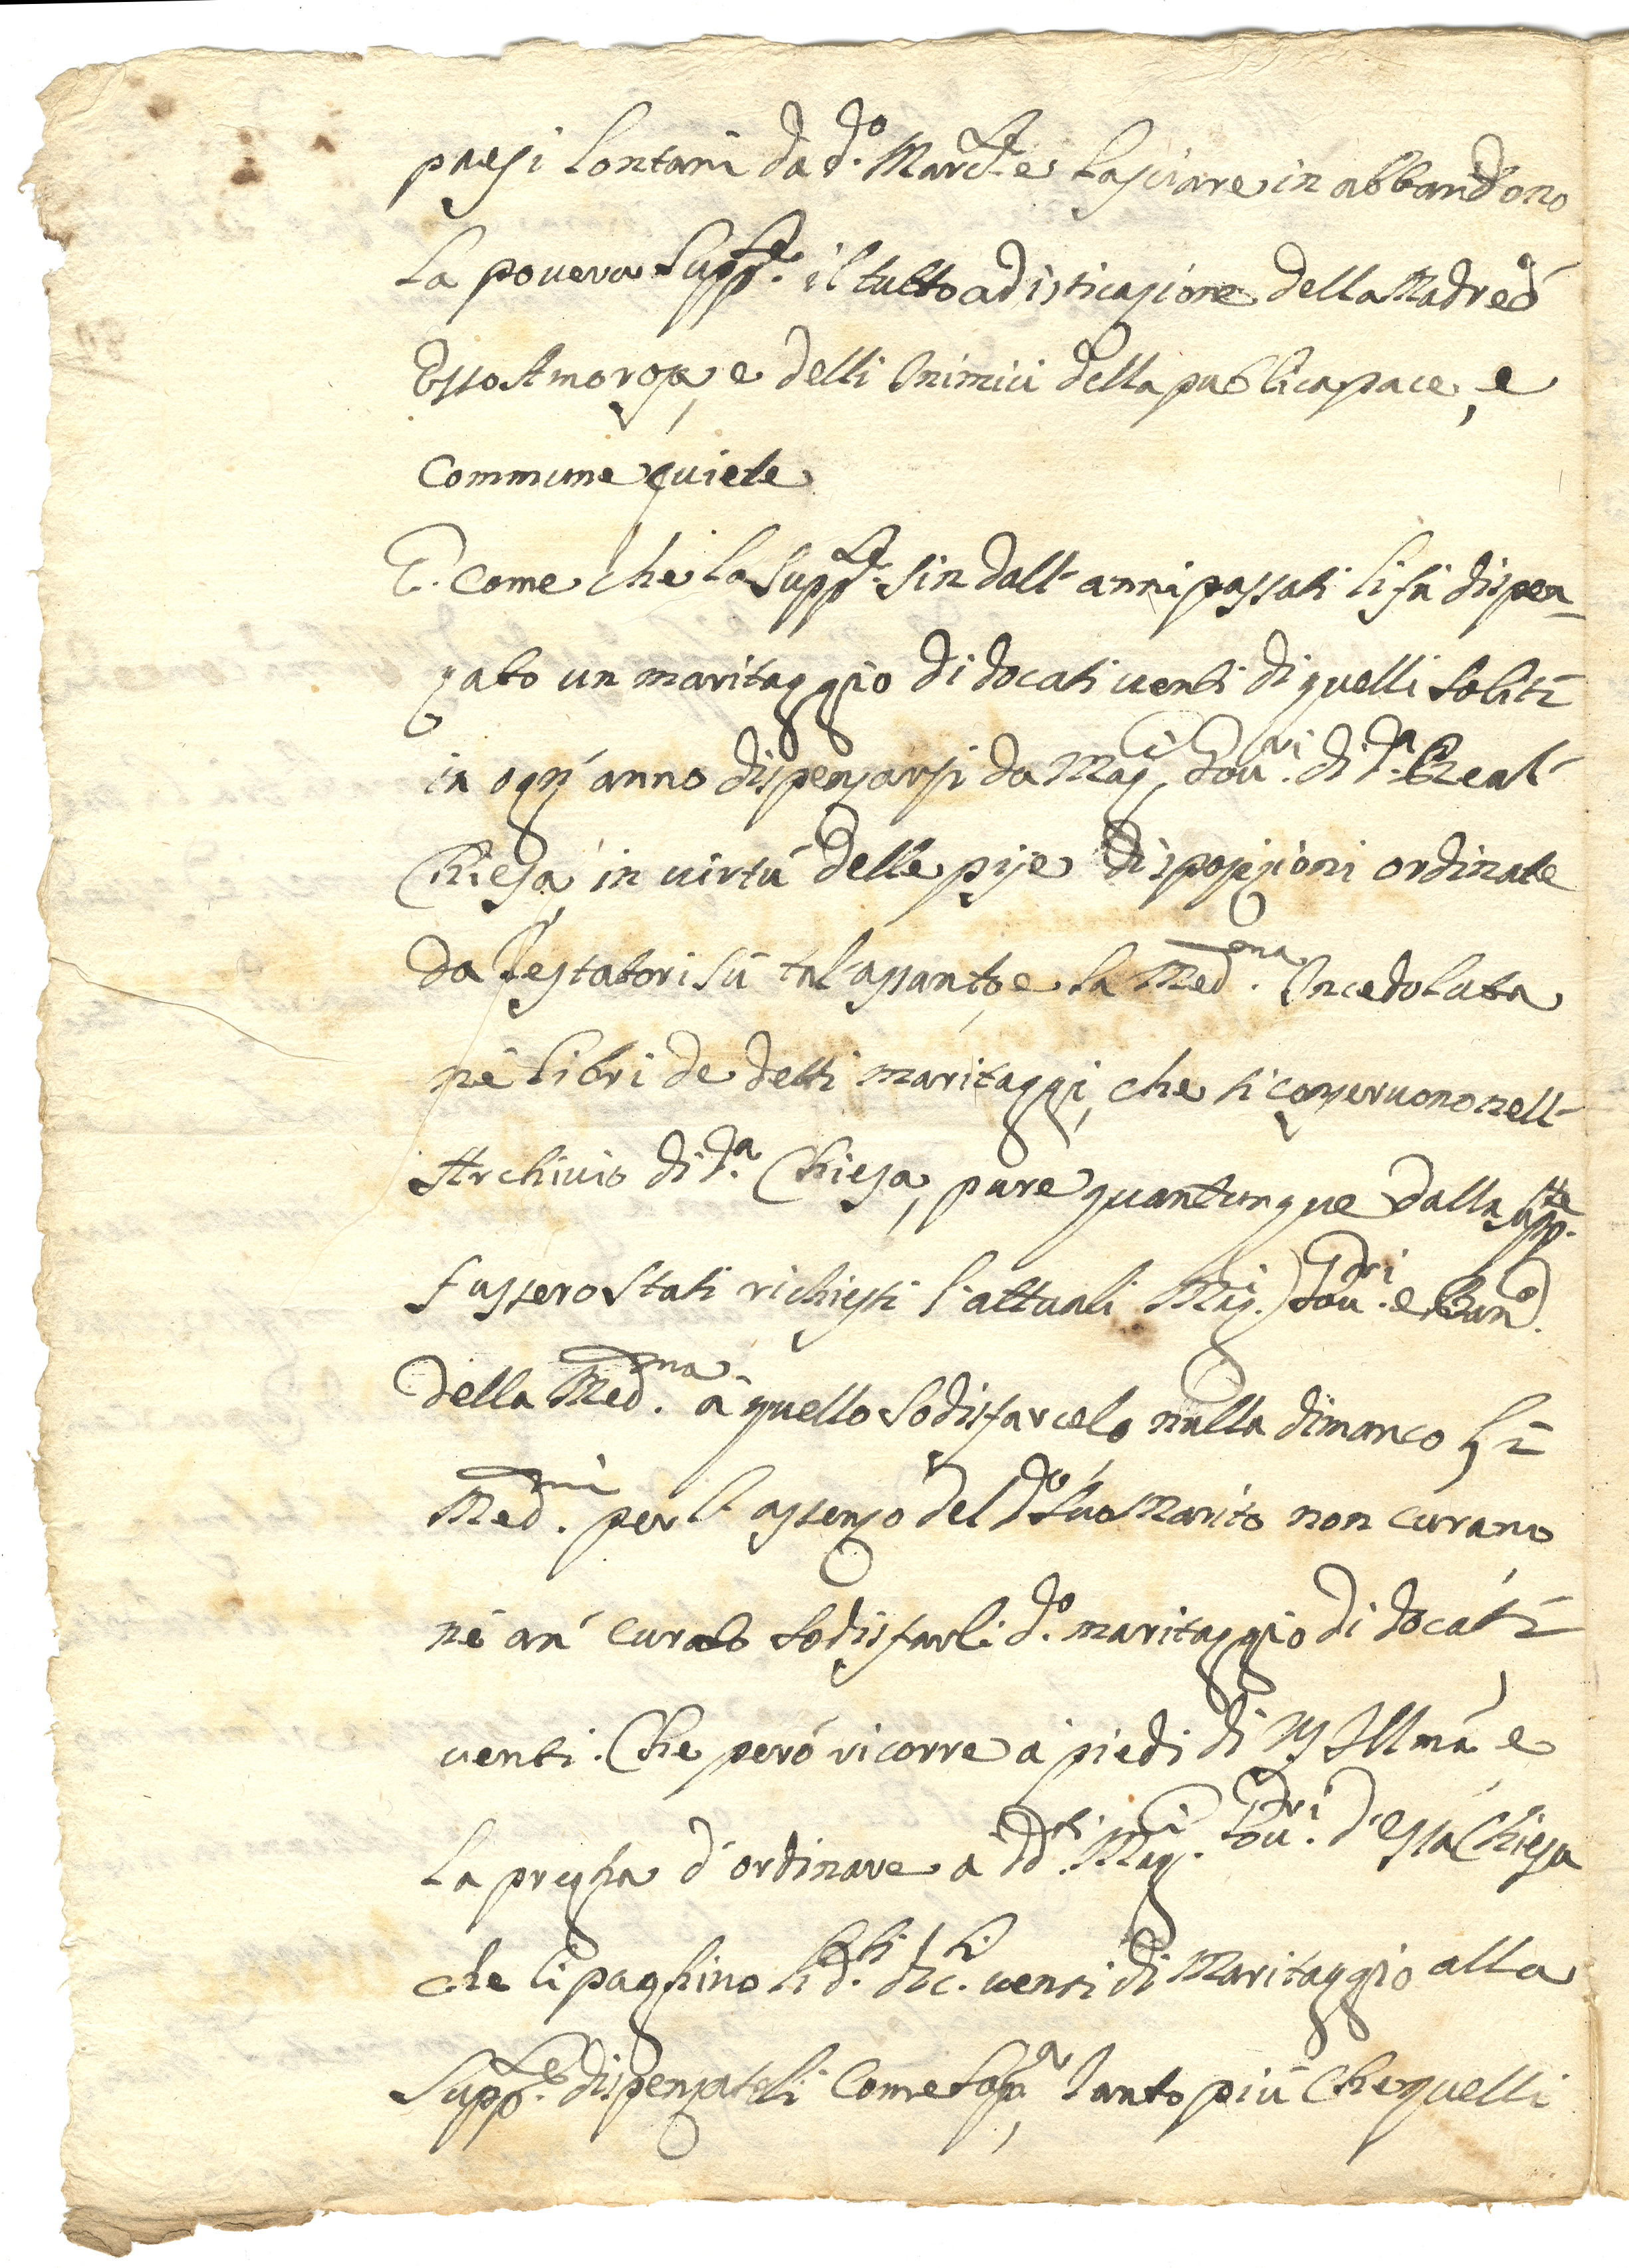 paesi lontani da d.º March.e e lasciare in abbandono
la povera Supp.te il tutto ad istigazione della Madre d'
esso Amorosa, e delli Inimici della publica pace, e
Commune quiete
E come che la Supp.te sin dall' anni passati li fù dispen-
zato un maritaggio di docati venti di quelli soliti
in ogn' anno dispenzarsi da Mag.ci Gov.ri di d.ª Real
Chiesa, in virtù delle pije disposizioni ordinate
da Testatori sù tal' assanto, e la Med.ma Incedolata
ne libri de detti maritaggi, che si conservono nell'
Archivio di d.ª Chiesa, pure quantunque dalla Supp.te
fussero stati richiesti l'attuali Mag.ci Gov.dri e
della Med.ma à quello sodisfarcelo, nulla dimanco li
Med.mi per l' assenzo del d.º suo Marito non curano
nè an' curato sodisfarli d.º maritaggio di docati
venti. Che però ricorre à piedi di VS Illma e
la preg̃a d' ordinare a dd.ti Mag.ci Gov.dri d' essa Chiesa
che li paghino li d.ti dc.ti venti di Maritaggio alla
Supp.te dispenzateli come sop.ª Tanto più che quelli